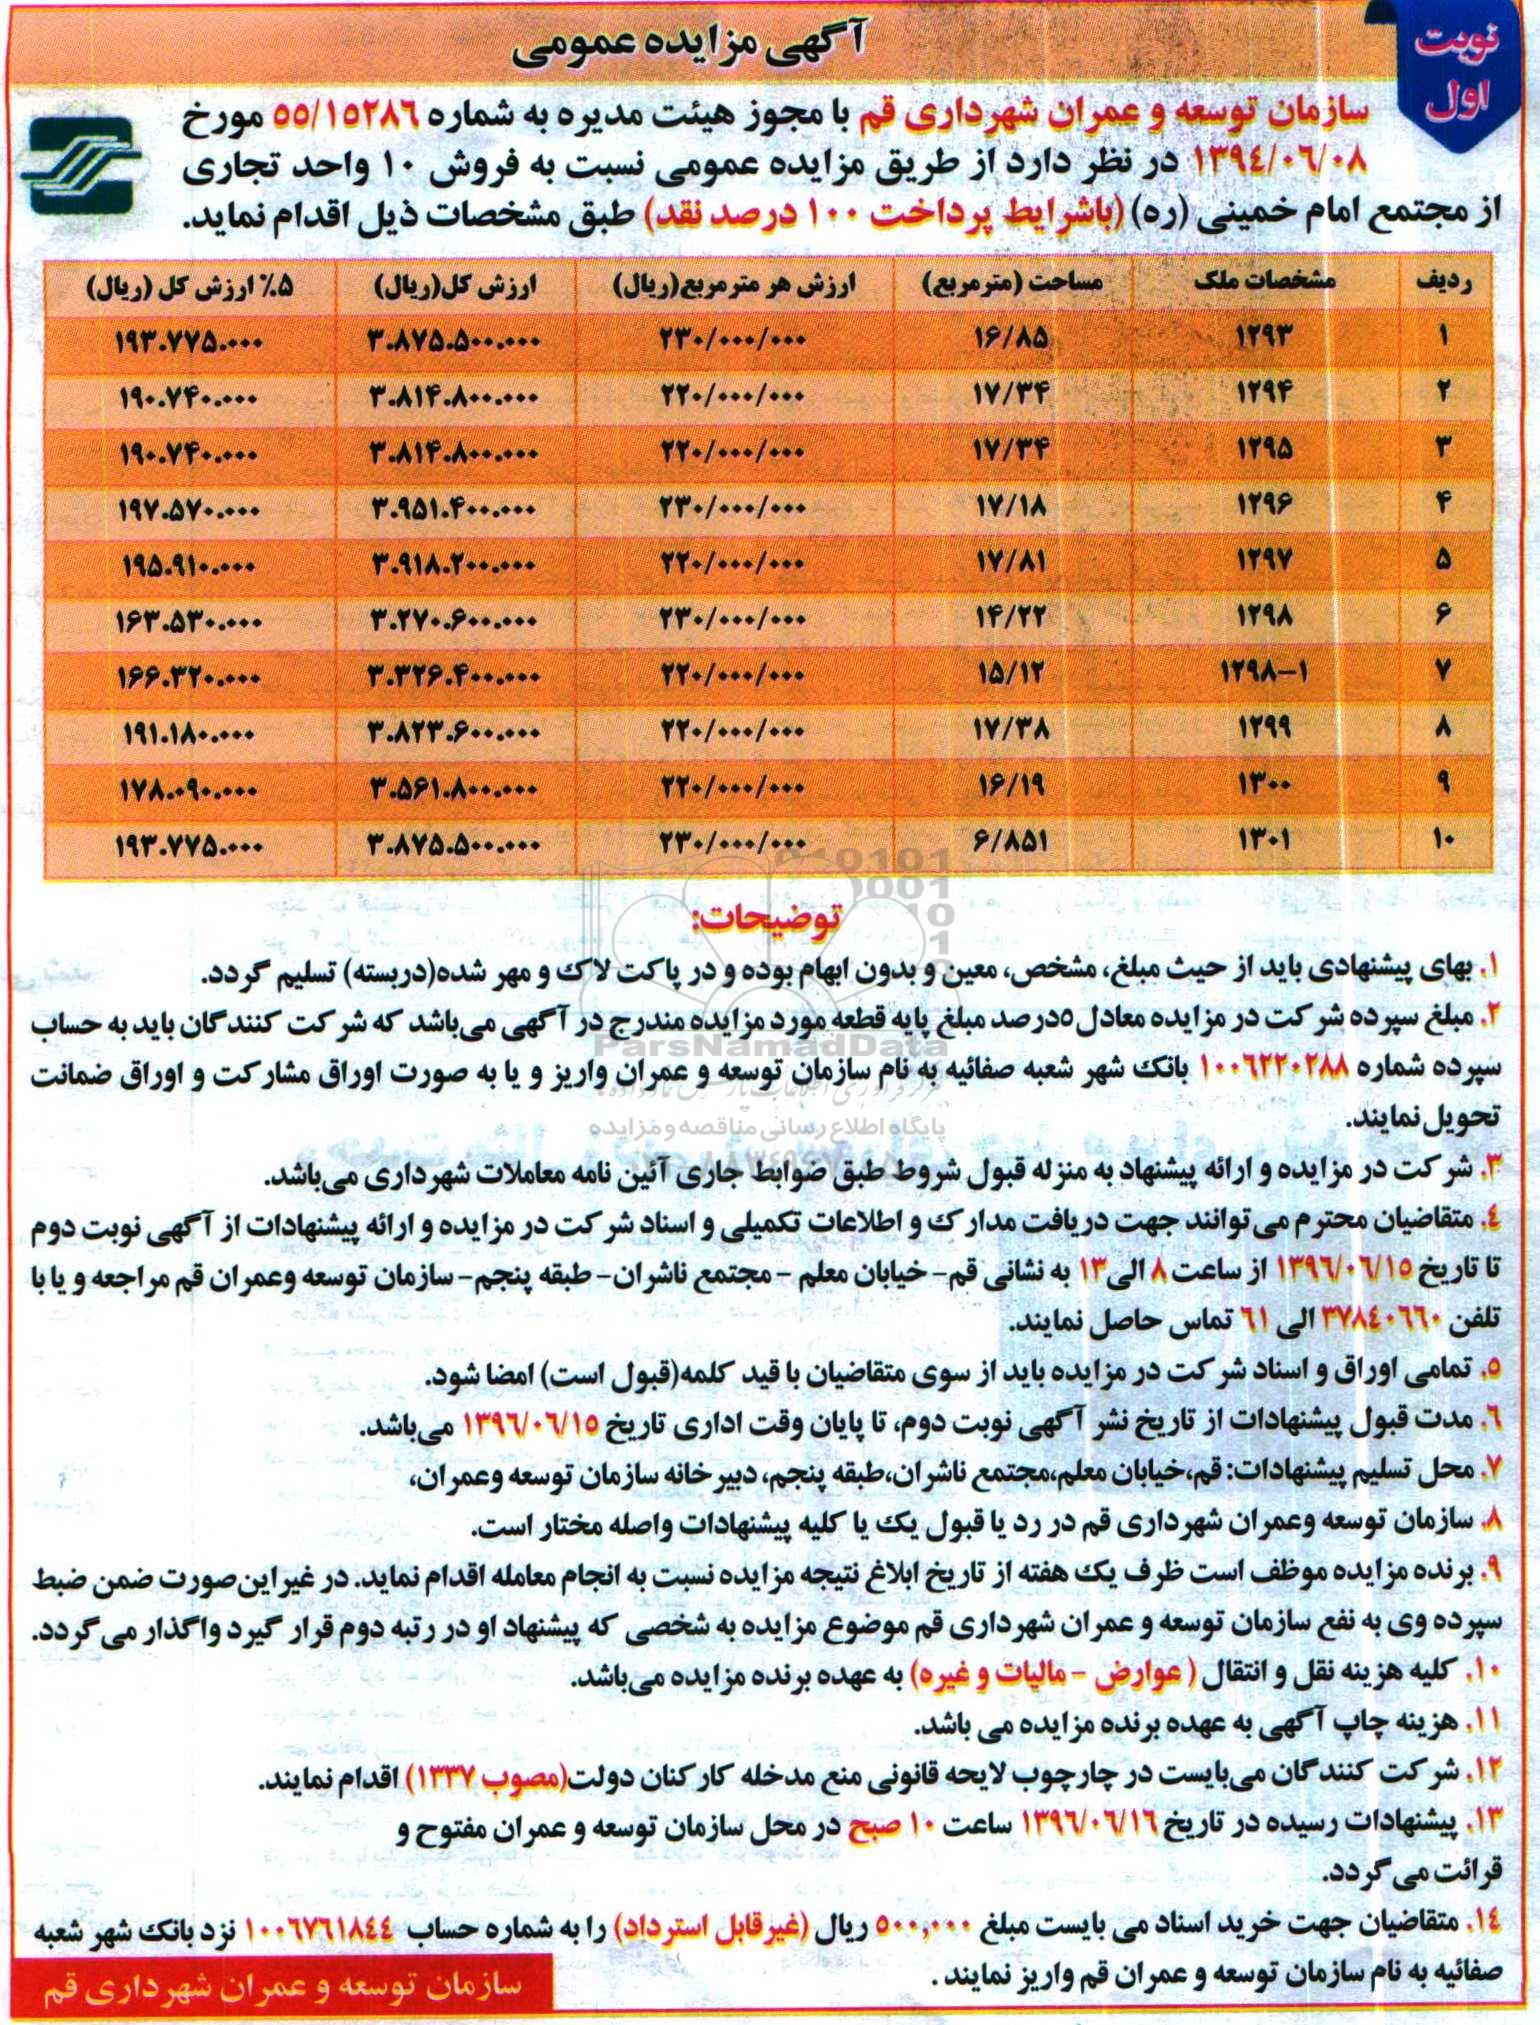 نوبت
اول
آگهی مزایده عمومی
سازمان توسعه و عمران شهرداری قم با مجوز هیئت مدیره به شماره ۵۵/۱۵۲۸۶ مورخ
۱۳۹٤/۰۶/۰۸ در نظر دارد از طریق مزایده عمومی نسبت به فروش ۱۰ واحد تجاری
از مجتمع امام خمینی (ره) (باشرایط پرداخت ۱۰۰ درصد نقد) طبق مشخصات ذیل اقدام نماید.
ردیف مشخصات ملک مساحت (مترمربع) ارزش هر مترمربع(ریال) ارزش کل(ریال) ۵٪ ارزش کل (ریال)
۱ ۱۲۹۳ ۱۶/۸۵ ۲۳۰/۰۰۰/۰۰۰ ۳.۸۷۵.۵۰۰.۰۰۰ ۱۹۳.۷۷۵.۰۰۰
۲ ۱۲۹۴ ۱۷/۳۴ ۲۲۰/۰۰۰/۰۰۰ ۳.۸۱۴.۸۰۰.۰۰۰ ۱۹۰.۷۴۰.۰۰۰
۳ ۱۲۹۵ ۱۷/۳۴ ۲۲۰/۰۰۰/۰۰۰ ۳.۸۱۴.۸۰۰.۰۰۰ ۱۹۰.۷۴۰.۰۰۰
۴ ۱۲۹۶ ۱۷/۱۸ ۲۳۰/۰۰۰/۰۰۰ ۳.۹۵۱.۴۰۰.۰۰۰ ۱۹۷.۵۷۰.۰۰۰
۵ ۱۲۹۷ ۱۷/۸۱ ۲۲۰/۰۰۰/۰۰۰ ۳.۹۱۸.۲۰۰.۰۰۰ ۱۹۵.۹۱۰.۰۰۰
۶ ۱۲۹۸ ۱۴/۲۲ ۲۳۰/۰۰۰/۰۰۰ ۳.۲۷۰.۶۰۰.۰۰۰ ۱۶۳.۵۳۰.۰۰۰
۷ ۱۲۹۸-۱ ۱۵/۱۲ ۲۲۰/۰۰۰/۰۰۰ ۳.۳۲۶.۴۰۰.۰۰۰ ۱۶۶.۳۲۰.۰۰۰
۸ ۱۲۹۹ ۱۷/۳۸ ۲۲۰/۰۰۰/۰۰۰ ۳.۸۲۳.۶۰۰.۰۰۰ ۱۹۱.۱۸۰.۰۰۰
۹ ۱۳۰۰ ۱۶/۱۹ ۲۲۰/۰۰۰/۰۰۰ ۳.۵۶۱.۸۰۰.۰۰۰ ۱۷۸.۰۹۰.۰۰۰
۱۰ ۱۳۰۱ ۶/۸۵۱ ۲۳۰/۰۰۰/۰۰۰ ۳.۸۷۵.۵۰۰.۰۰۰ ۱۹۳.۷۷۵.۰۰۰
توضیحات:
۱. بهای پیشنهادی باید از حیث مبلغ، مشخص، معین و بدون ابهام بوده و در پاکت لاک و مهر شده(دربسته) تسلیم گردد.
۲. مبلغ سپرده شرکت در مزایده معادل ۵درصد مبلغ پایه قطعه مورد مزایده مندرج در آگهی می‌باشد که شرکت کنندگان باید به حساب
سپرده شماره ۱۰۰۶۲۲۰۲۸۸ بانک شهر شعبه صفائیه به نام سازمان توسعه و عمران واریز و یا به صورت اوراق مشارکت و اوراق ضمانت
تحویل نمایند.
۳. شرکت در مزایده و ارائه پیشنهاد به منزله قبول شروط طبق ضوابط جاری آئین نامه معاملات شهرداری می‌باشد.
٤. متقاضیان محترم می‌توانند جهت دریافت مدارک و اطلاعات تکمیلی و اسناد شرکت در مزایده و ارائه پیشنهادات از آگهی نوبت دوم
تا تاریخ ۱۳۹۶/۰۶/۱۵ از ساعت ۸ الی ۱۳ به نشانی قم- خیابان معلم - مجتمع ناشران- طبقه پنجم- سازمان توسعه وعمران قم مراجعه و یا با
تلفن ۳۷۸٤۰۶۶۰ الی ۶۱ تماس حاصل نمایند.
۵. تمامی اوراق و اسناد شرکت در مزایده باید از سوی متقاضیان با قید کلمه(قبول است) امضا شود.
۶. مدت قبول پیشنهادات از تاریخ نشر آگهی نوبت دوم، تا پایان وقت اداری تاریخ ۱۳۹۶/۰۶/۱۵ می‌باشد.
۷. محل تسلیم پیشنهادات: قم،خیابان معلم،مجتمع ناشران،طبقه پنجم، دبیرخانه سازمان توسعه وعمران،
۸. سازمان توسعه وعمران شهرداری قم در رد یا قبول یک یا کلیه پیشنهادات واصله مختار است.
۹. برنده مزایده موظف است ظرف یک هفته از تاریخ ابلاغ نتیجه مزایده نسبت به انجام معامله اقدام نماید. در غیراین‌صورت ضمن ضبط
سپرده وی به نفع سازمان توسعه و عمران شهرداری قم موضوع مزایده به شخصی که پیشنهاد او در رتبه دوم قرار گیرد واگذار می‌گردد.
۱۰. کلیه هزینه نقل و انتقال (عوارض - مالیات و غیره) به عهده برنده مزایده می‌باشد.
۱۱. هزینه چاپ آگهی به عهده برنده مزایده می باشد.
۱۲. شرکت کنندگان می‌بایست در چارچوب لایحه قانونی منع مدخله کارکنان دولت(مصوب ۱۳۳۷) اقدام نمایند.
۱۳. پیشنهادات رسیده در تاریخ ۱۳۹۶/۰۶/۱۶ ساعت ۱۰ صبح در محل سازمان توسعه و عمران مفتوح و
قرائت می‌گردد.
۱٤. متقاضیان جهت خرید اسناد می بایست مبلغ ۵۰۰,۰۰۰ ریال (غیرقابل استرداد) را به شماره حساب ۱۰۰۶۷۶۱۸٤٤ نزد بانک شهر شعبه
صفائیه به نام سازمان توسعه و عمران قم واریز نمایند.
سازمان توسعه و عمران شهرداری قم
ParsNamadData
پایگاه اطلاع رسانی مناقصه و مزایده